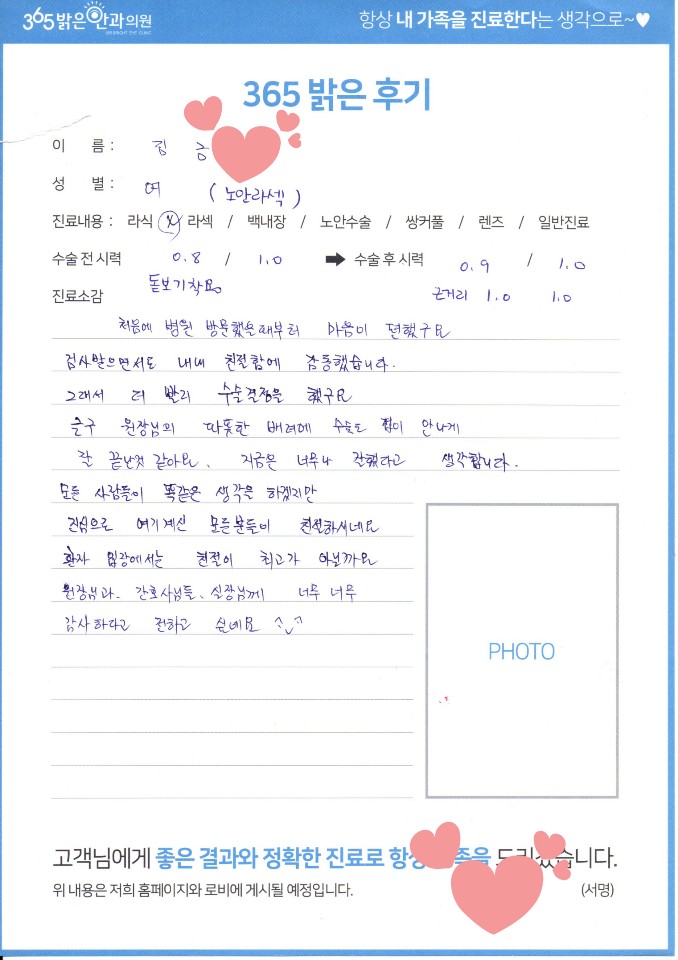 365 밝은안과의원
항상 내 가족을 진료한다는 생각으로~♥
365 밝은 후기
이 름 : 김 금
성 별 : 여 (노안라섹)
진료내용 : 라식 / 라섹 / 백내장 / 노안수술 / 쌍커풀 / 렌즈 / 일반진료
수술 전 시력 0.8 / 1.0 ➡ 수술 후 시력 0.9 / 1.0
진료소감 돋보기착용 근거리 1.0 1.0
처음에 병원 방문했을때부터 마음이 편했구요
검사받으면서도 내내 친절함에 감동했습니다.
그래서 더 빨리 수술결정을 했구요
원장님의 따뜻한 배려에 수술도 힘이 안나게
잘 끝난것 같아요. 지금은 너무나 잘했다고 생각합니다.
모든 사람들이 똑같은 생각을 하겠지만
진심으로 여기계신 모든분들이 친절하시네요
환자 입장에서는 친절이 최고가 아닐까요
원장님과. 간호사님들, 실장님께 너무 너무
감사하다고 전하고 싶네요 ^◡^
PHOTO
고객님에게 좋은 결과와 정확한 진료로 항상 족을 드리겠습니다.
위 내용은 저희 홈페이지와 로비에 게시될 예정입니다. (서명)